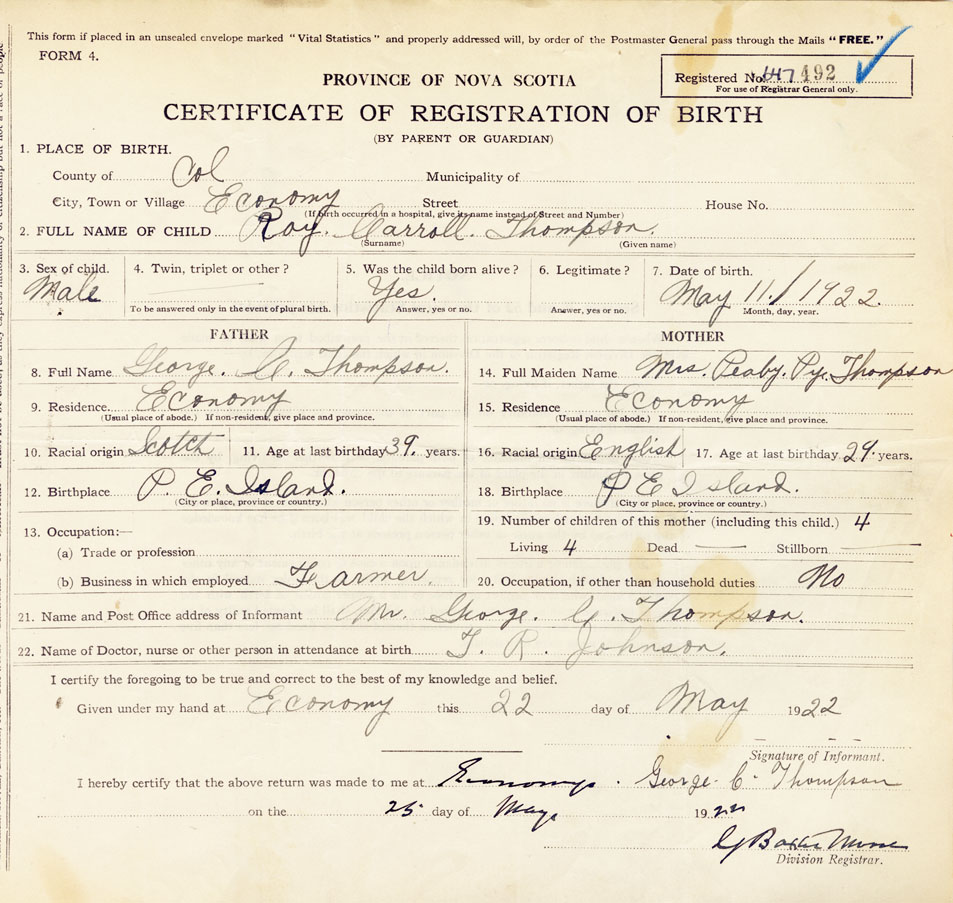 This form if placed in an unsealed envelope marked "Vital Statistics" and properly addressed will, by order of the Postmaster General pass through the Mails "FREE."
FORM 4.
Registered No. 492
For use of Registrar General only.
PROVINCE OF NOVA SCOTIA
CERTIFICATE OF REGISTRATION OF BIRTH
(BY PARENT OR GUARDIAN)
1. PLACE OF BIRTH.
County of Col Municipality of
City, Town or Village Economy Street House No.
(If birth occurred in a hospital, give its name instead of Street and Number)
2. FULL NAME OF CHILD Roy. Carroll. Thompson.
(Surname) (Given name)
3. Sex of child. 4. Twin, triplet or other? 5. Was the child born alive? 6. Legitimate? 7. Date of birth.
Male Yes. May 11/1922.
To be answered only in the event of plural birth. Answer, yes or no. Answer, yes or no. Month, day, year.
FATHER MOTHER
8. Full Name George. C. Thompson. 14. Full Maiden Name Mrs. Thompson
9. Residence Economy 15. Residence Economy
(Usual place of abode.) If non-resident, give place and province. (Usual place of abode.) If non-resident, give place and province.
10. Racial origin Scotch 11. Age at last birthday 39. years. 16. Racial origin English 17. Age at last birthday 29. years.
12. Birthplace P. E. Island. 18. Birthplace P E Island.
(City or place, province or country.) (City or place, province or country.)
13. Occupation:— 19. Number of children of this mother (including this child.) 4
(a) Trade or profession Living 4 Dead — Stillborn —
(b) Business in which employed Farmer. 20. Occupation, if other than household duties No
21. Name and Post Office address of Informant Mr. George. C. Thompson.
22. Name of Doctor, nurse or other person in attendance at birth T. R. Johnson.
I certify the foregoing to be true and correct to the best of my knowledge and belief.
Given under my hand at Economy this 22 day of May 1922
Signature of Informant.
I hereby certify that the above return was made to me at Economy. George C Thompson
on the 25 day of May 1922
Division Registrar.